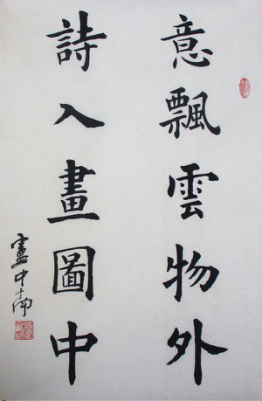 意飄雲物外
詩入畫圖中